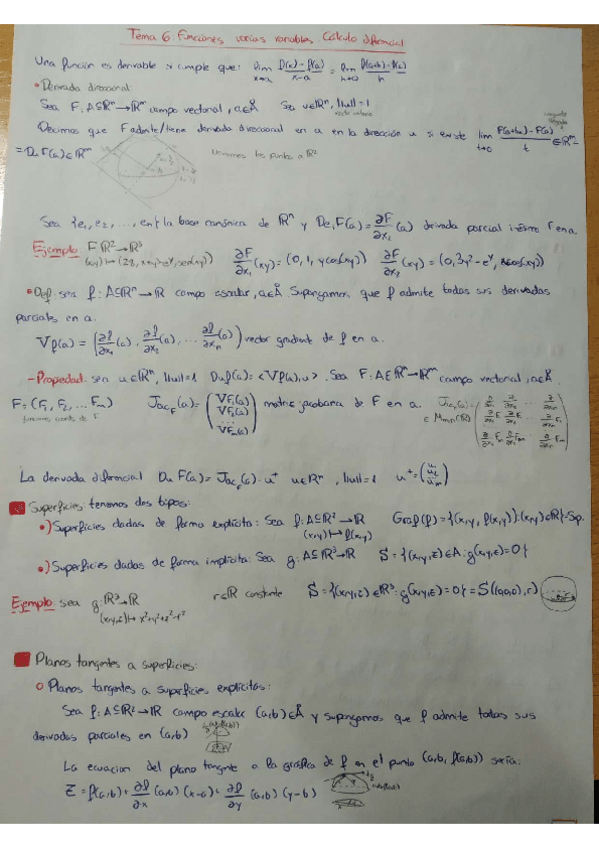 Tema 6: Funciones varias variables. Calculo diferencial
Una función es derivable si cumple que: lim x→a f(x) - f(a) / x - a = lim h→0 f(a+h) - f(a) / h
• Derivada direccional:
Sea F: A⊆ℝⁿ → ℝᵐ campo vectorial, a∈Å Sea u∈ℝⁿ, ||u|| = 1
Decimos que F admite/tiene derivada direccional en a en la dirección u si existe lim t→0 F(a+tu) - F(a) / t ∈ ℝᵐ =
= Dᵤ F(a) ∈ ℝᵐ
Sea {e₁, e₂, ..., eₙ} la base canónica de ℝⁿ y De₁F(a) = ∂F/∂x₁ (a) derivada parcial F en a.
Ejemplo: F ℝ² → ℝ³
∂F/∂x₁ (x,y) = (0, 1, y cos(xy)) ∂F/∂x₂ (x,y) = (0, 3y² - eʸ, x cos(xy))
• Def: sea f: A⊆ℝⁿ → ℝ campo escalar, a∈Å. Supongamos que f admite todas sus derivadas
parciales en a.
∇f(a) = (∂f/∂x₁ (a), ∂f/∂x₂ (a), ... ∂f/∂xₙ (a)) vector gradiente de f en a.
- Propiedad: sea u∈ℝⁿ, ||u|| = 1 Dᵤf(a) = <∇f(a), u>. Sea F: A∈ℝⁿ → ℝᵐ campo vectorial, a∈Å.
F = (F₁, F₂, ... Fₘ) Jac_F(a) = (∇F₁(a) ∇F₂(a) ... ∇Fₘ(a)) matriz jacobiana de F en a.
La derivada diferencial Dᵤ F(a) = Jac_F(a) · u⁺ u∈ℝⁿ, ||u|| = 1
Superficies tenemos dos tipos:
•) Superficies dadas de forma explícita: Sea f: A⊆ℝ² → ℝ Graf(f) = {(x,y, f(x,y)): (x,y)∈ℝ}
(x,y) ↦ f(x,y)
•) Superficies dadas de forma implícita: Sea g: A⊆ℝ³ → ℝ S = {(x,y,z)∈A: g(x,y,z) = 0}
Ejemplo: sea g: ℝ³ → ℝ r∈ℝ constante S = {(x,y,z)∈ℝ³: g(x,y,z) = 0} = S((0,0,0), r)
(x,y,z) ↦ x²+y²+z²-r²
Planos tangentes a superficies:
o Planos tangentes a superficies explícitas:
Sea f: A⊆ℝ² → ℝ campo escalar (a,b)∈Å y supongamos que f admite todas sus
derivadas parciales en (a,b)
La ecuacion del plano tangente a la gráfica de f en el punto (a,b, f(a,b)) sería:
z = f(a,b) + ∂f/∂x (a,b) (x-a) + ∂f/∂y (a,b) (y-b)